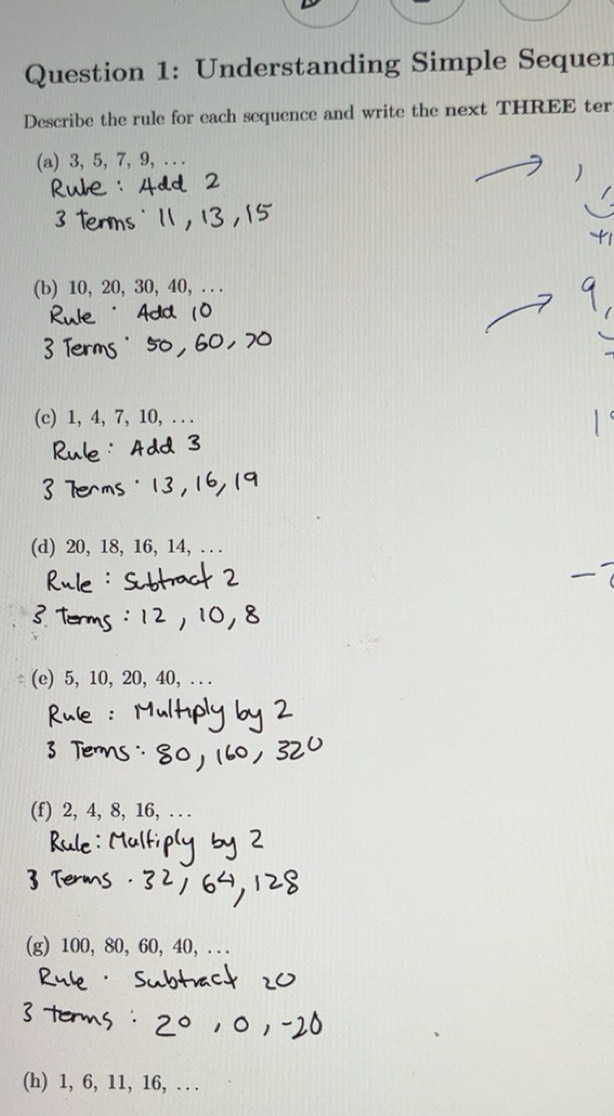 Question 1: Understanding Simple Sequen
Describe the rule for each sequence and write the next THREE ter
(a) 3, 5, 7, 9, ...
Rule : Add 2
3 terms : 11, 13, 15
(b) 10, 20, 30, 40, ...
Rule : Add 10
3 Terms : 50, 60, 70
9,
(c) 1, 4, 7, 10, ...
Rule : Add 3
3 Terms : 13, 16, 19
(d) 20, 18, 16, 14, ...
Rule : Subtract 2
3 Terms : 12, 10, 8
(e) 5, 10, 20, 40, ...
Rule : Multiply by 2
3 Terms : 80, 160, 320
(f) 2, 4, 8, 16, ...
Rule : Multiply by 2
3 Terms . 32, 64, 128
(g) 100, 80, 60, 40, ...
Rule . Subtract 20
3 terms : 20, 0, -20
(h) 1, 6, 11, 16, ...